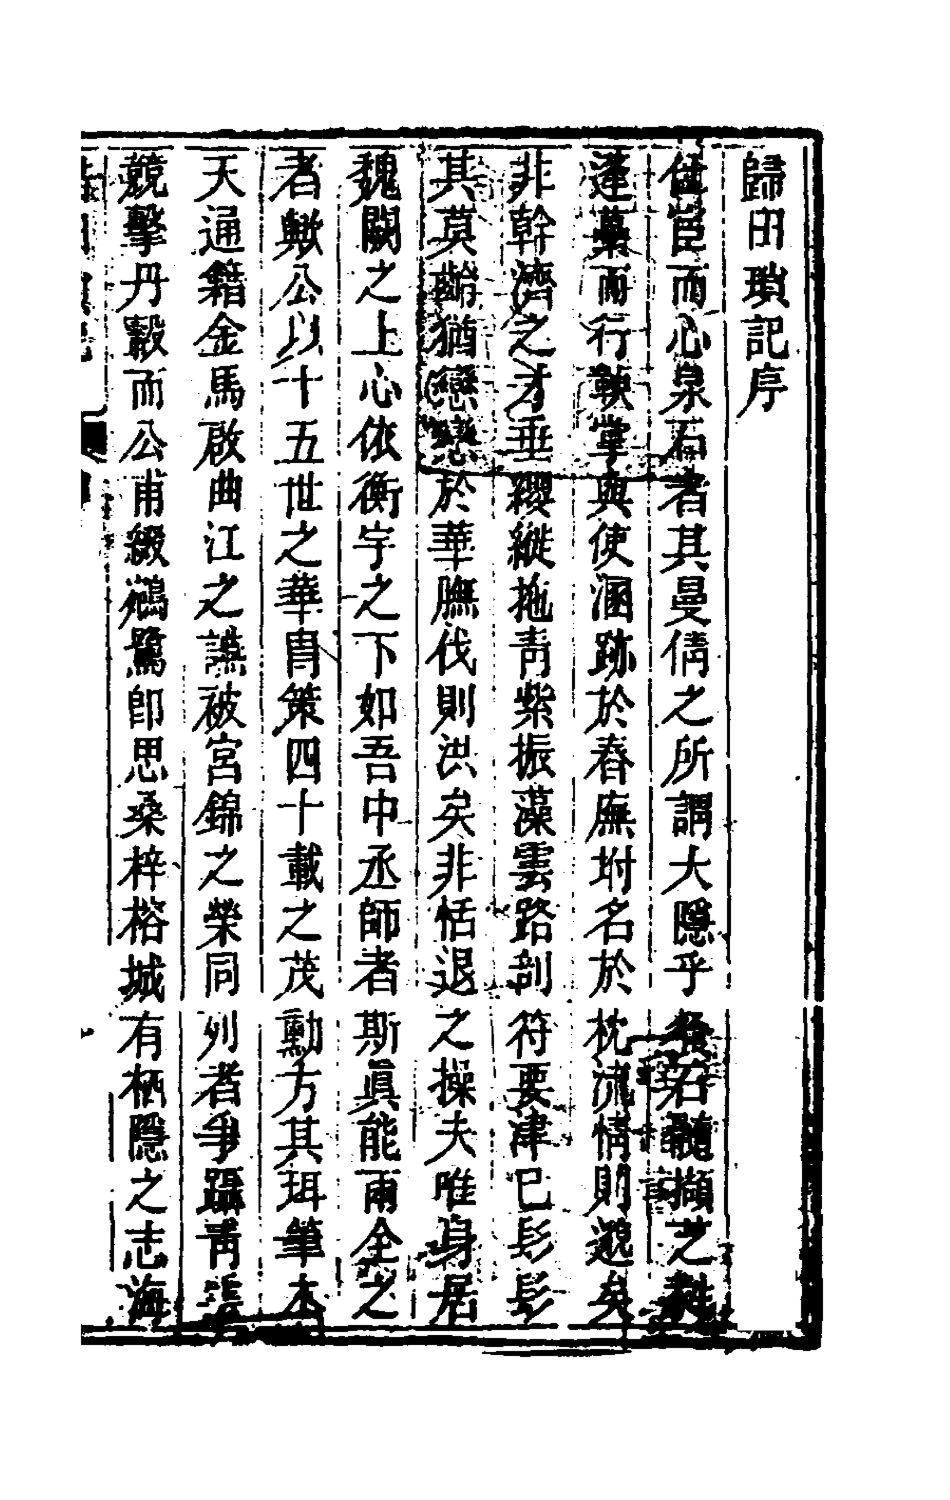 歸田瑣記序
宦而心泉石者其曼倩之所謂大隱乎餐石髓擷芝
蓬藋而行鞅掌與使溷跡於舂廡坿名於枕流情則邈矣
非幹濟之才垂纓縰拖靑紫振藻雲路剖符要津巳髟髟
其莫齡猶戀戀於華膴伐則洪矣非恬退之操夫唯身居
魏闕之上心依衡宇之下如吾中丞師者斯眞能兩全之
者歟公以十五世之華胄策四十載之茂勳方其珥筆木
天通籍金馬啟曲江之讌被宮錦之榮同列者爭躡靑雲
競擊丹轂而公甫綴鵷鷺卽思桑梓榕城有栖隱之志海